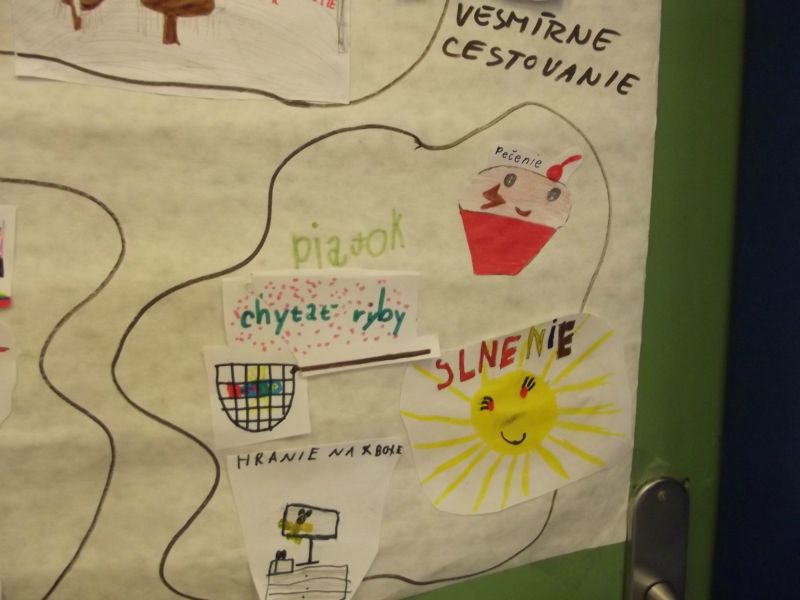 VESMÍRNE
CESTOVANIE
Pečenie
piatok
chytať ryby
SLNENIE
HRANIE NA X BOXE